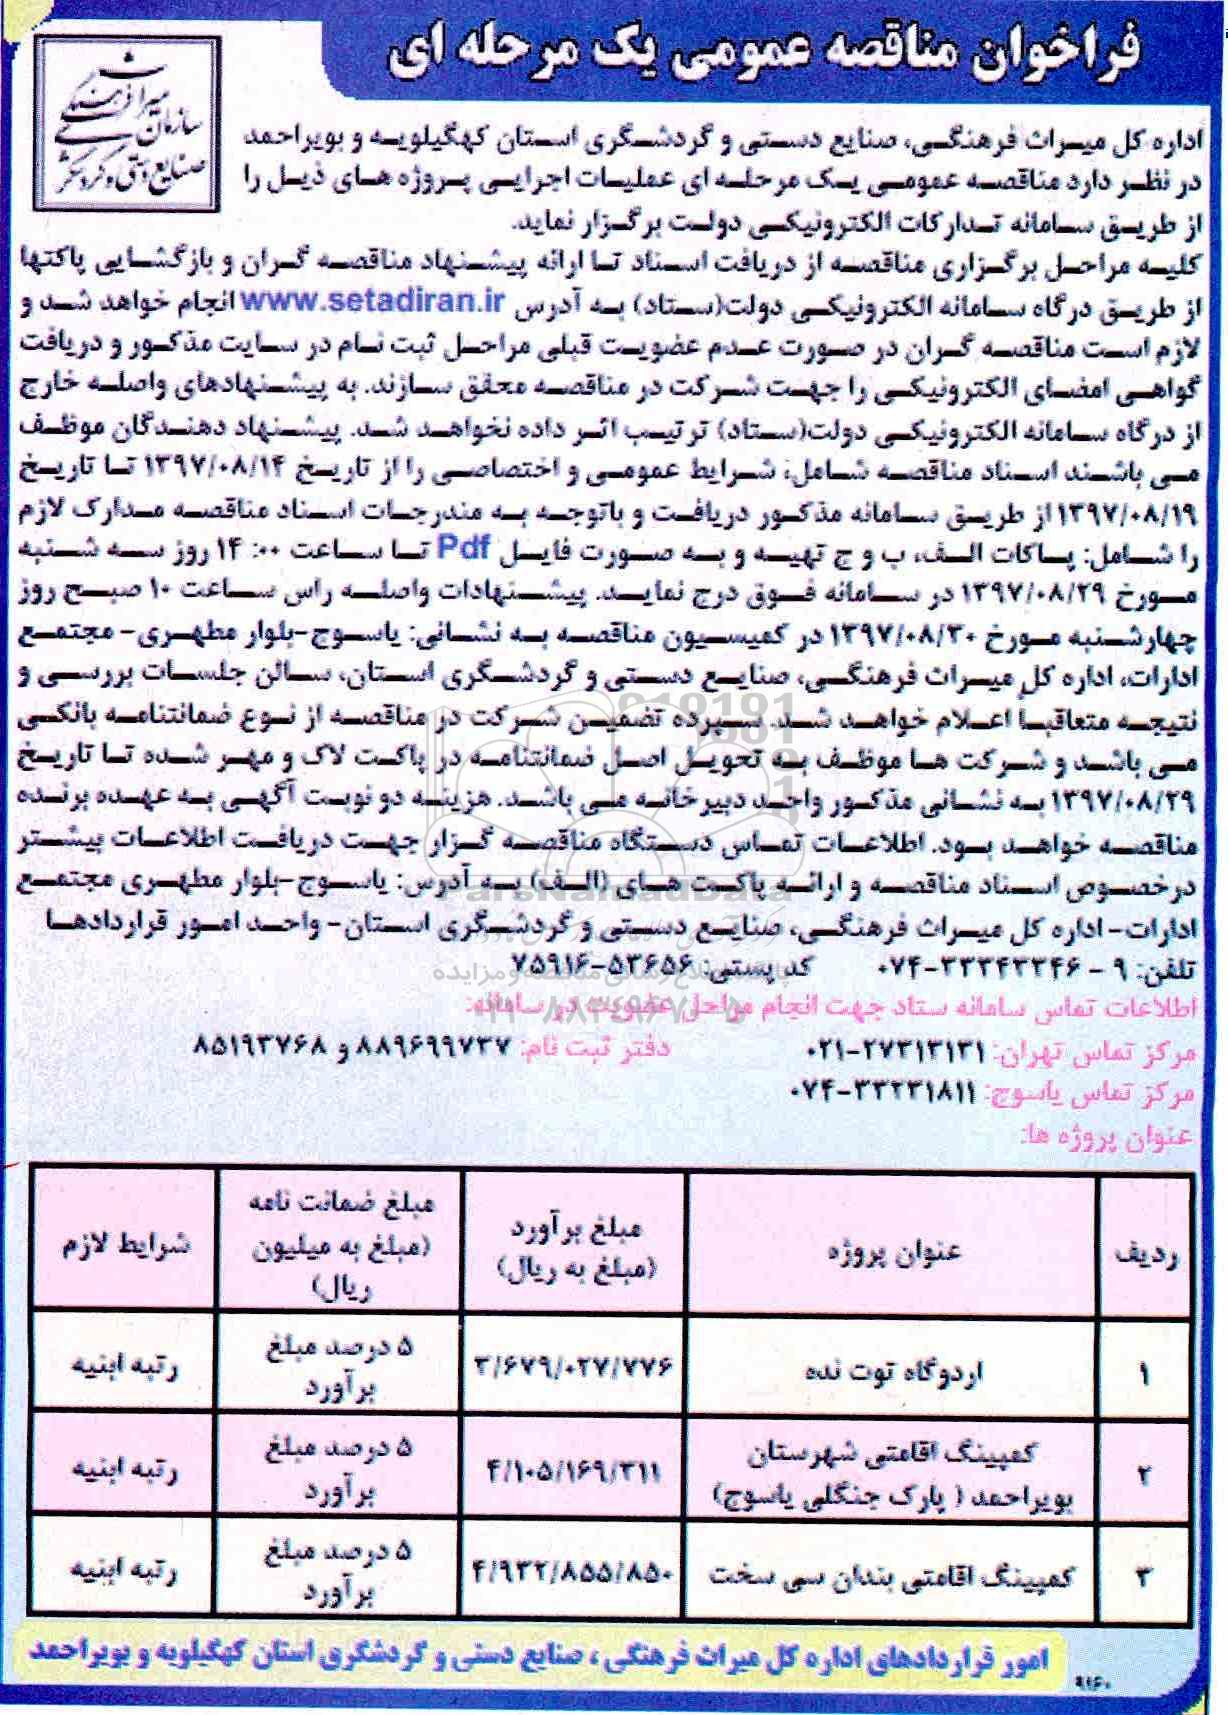 فراخوان مناقصه عمومی یک مرحله ای
سازمان میراث فرهنگی
صنایع دستی و گردشگری
اداره کل میراث فرهنگی، صنایع دستی و گردشگری استان کهگیلویه و بویراحمد
در نظر دارد مناقصه عمومی یک مرحله ای عملیات اجرایی پروژه های ذیل را
از طریق سامانه تدارکات الکترونیکی دولت برگزار نماید.
کلیه مراحل برگزاری مناقصه از دریافت اسناد تا ارائه پیشنهاد مناقصه گران و بازگشایی پاکتها
از طریق درگاه سامانه الکترونیکی دولت(ستاد) به آدرس www.setadiran.ir انجام خواهد شد و
لازم است مناقصه گران در صورت عدم عضویت قبلی مراحل ثبت نام در سایت مذکور و دریافت
گواهی امضای الکترونیکی را جهت شرکت در مناقصه محقق سازند. به پیشنهادهای واصله خارج
از درگاه سامانه الکترونیکی دولت(ستاد) ترتیب اثر داده نخواهد شد. پیشنهاد دهندگان موظف
می باشند اسناد مناقصه شامل: شرایط عمومی و اختصاصی را از تاریخ ۱۳۹۷/۰۸/۱۴ تا تاریخ
۱۳۹۷/۰۸/۱۹ از طریق سامانه مذکور دریافت و باتوجه به مندرجات اسناد مناقصه مدارک لازم
را شامل: پاکات الف، ب و ج تهیه و به صورت فایل Pdf تا ساعت ۱۴:۰۰ روز سه شنبه
مورخ ۱۳۹۷/۰۸/۲۹ در سامانه فوق درج نماید. پیشنهادات واصله راس ساعت ۱۰ صبح روز
چهارشنبه مورخ ۱۳۹۷/۰۸/۳۰ در کمیسیون مناقصه به نشانی: یاسوج-بلوار مطهری- مجتمع
ادارات، اداره کل میراث فرهنگی، صنایع دستی و گردشگری استان، سالن جلسات بررسی و
نتیجه متعاقبا اعلام خواهد شد. سپرده تضمین شرکت در مناقصه از نوع ضمانتنامه بانکی
می باشد و شرکت ها موظف به تحویل اصل ضمانتنامه در پاکت لاک و مهر شده تا تاریخ
۱۳۹۷/۰۸/۲۹ به نشانی مذکور واحد دبیرخانه می باشد. هزینه دو نوبت آگهی به عهده برنده
مناقصه خواهد بود. اطلاعات تماس دستگاه مناقصه گزار جهت دریافت اطلاعات بیشتر
درخصوص اسناد مناقصه و ارائه پاکت های (الف) به آدرس: یاسوج-بلوار مطهری مجتمع
ادارات- اداره کل میراث فرهنگی، صنایع دستی و گردشگری استان- واحد امور قراردادها
تلفن: ۹ - ۰۷۴-۳۳۳۴۳۳۴۶ کد پستی: ۵۳۶۵۶-۷۵۹۱۶
اطلاعات تماس سامانه ستاد جهت انجام مراحل عضویت در سامانه:
مرکز تماس تهران: ۲۷۳۱۳۱۳۱-۰۲۱ دفتر ثبت نام: ۸۸۹۶۹۹۷۳۷ و ۸۵۱۹۳۷۶۸
مرکز تماس یاسوج: ۳۳۲۳۱۸۱۱-۰۷۴
عنوان پروژه ها:
ردیف عنوان پروژه مبلغ برآورد (مبلغ به ریال) مبلغ ضمانت نامه (مبلغ به میلیون ریال) شرایط لازم
۱ اردوگاه توت نده ۳/۶۷۹/۰۲۷/۷۷۶ ۵ درصد مبلغ برآورد رتبه ابنیه
۲ کمپینگ اقامتی شهرستان بویراحمد ( پارک جنگلی یاسوج) ۴/۱۰۵/۱۶۹/۳۱۱ ۵ درصد مبلغ برآورد رتبه ابنیه
۳ کمپینگ اقامتی بندان سی سخت ۴/۹۳۲/۸۵۵/۸۵۰ ۵ درصد مبلغ برآورد رتبه ابنیه
امور قراردادهای اداره کل میراث فرهنگی، صنایع دستی و گردشگری استان کهگیلویه و بویراحمد
۹۱۶۰
ParsNamadData